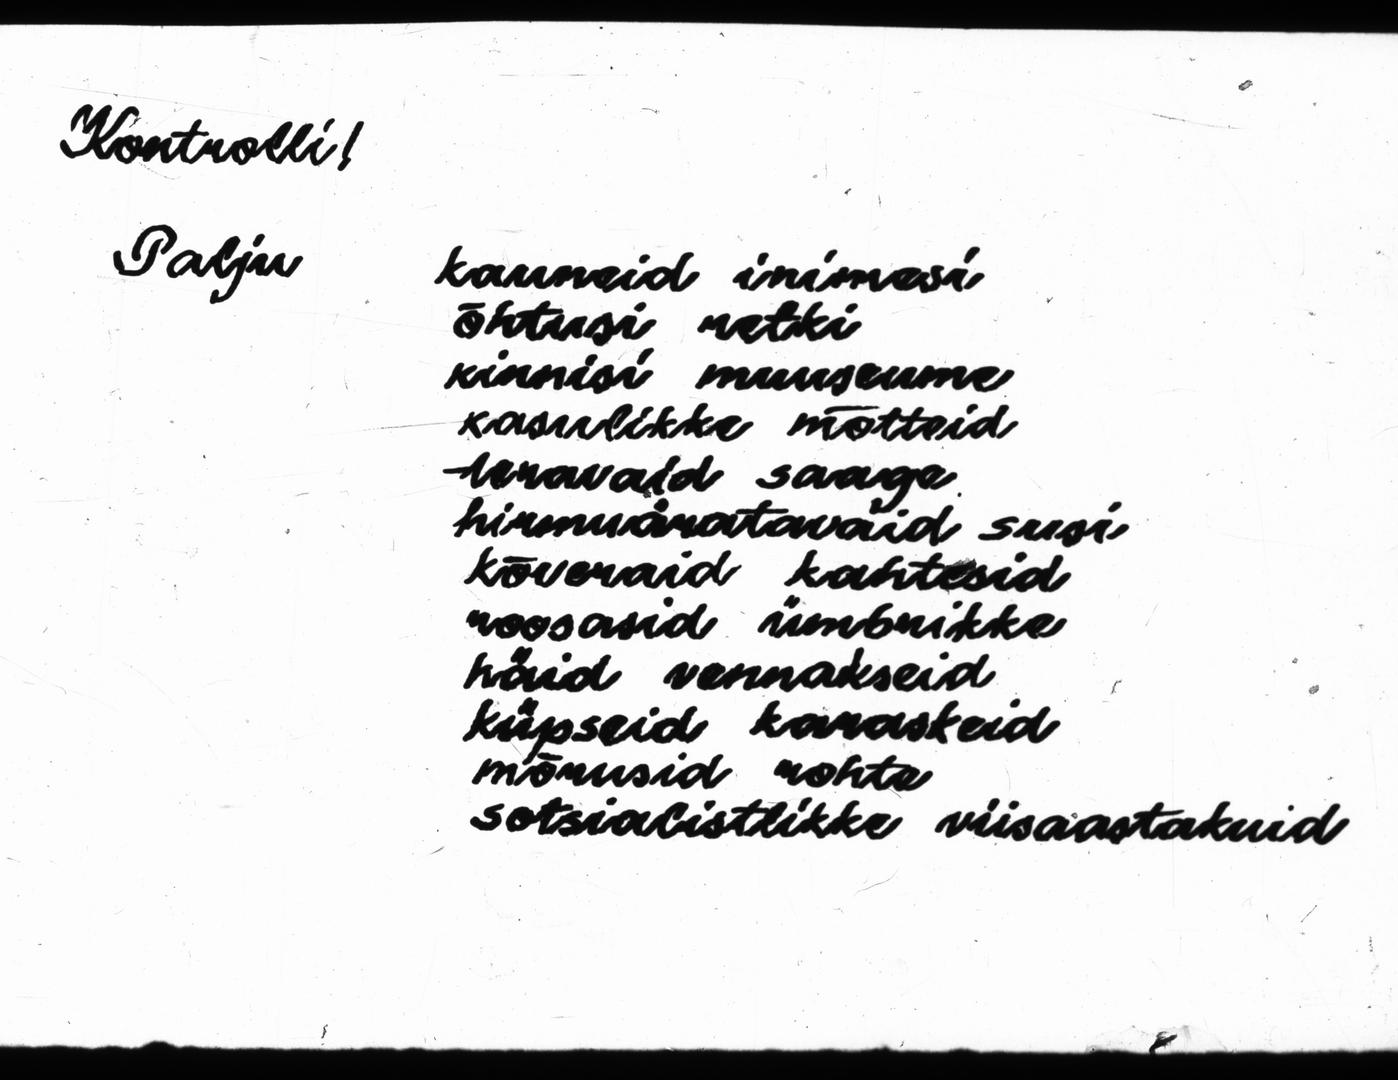 Kontrolli!
Palju kauneid inimesi
õhtusi retki
kinnisi muuseume
kasulikke mõtteid
teravaid saage
hirmuäratavaid susi
kõveraid kahtesid
roosasid ümbrikke
häid vennakseid
küpseid karaskeid
mõrusid rohte
sotsialistlikke viisaastakuid